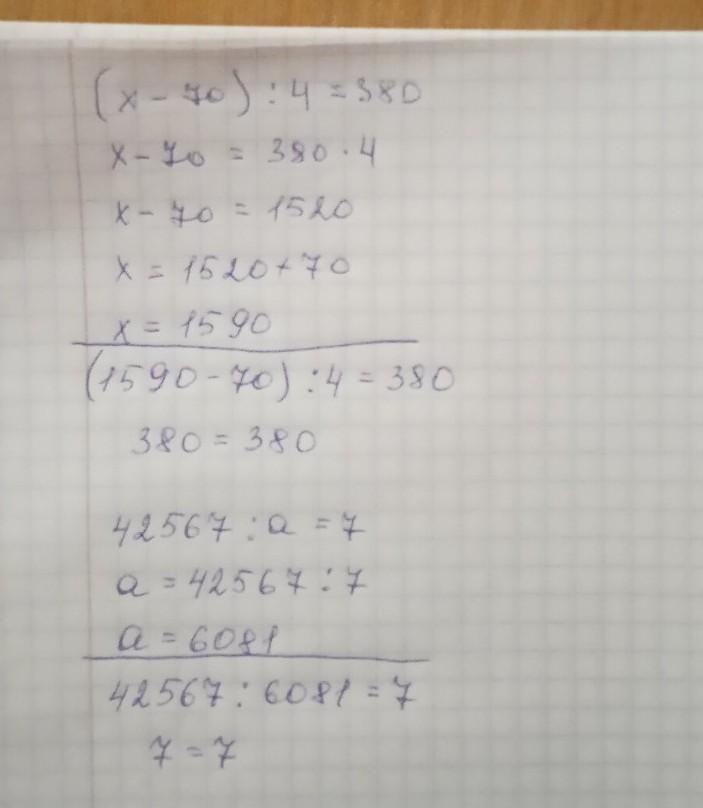 (x - 70) : 4 = 380
x - 70 = 380 · 4
x - 70 = 1520
x = 1520 + 70
x = 1590
(1590 - 70) : 4 = 380
380 = 380
42567 : a = 7
a = 42567 : 7
a = 6081
42567 : 6081 = 7
7 = 7